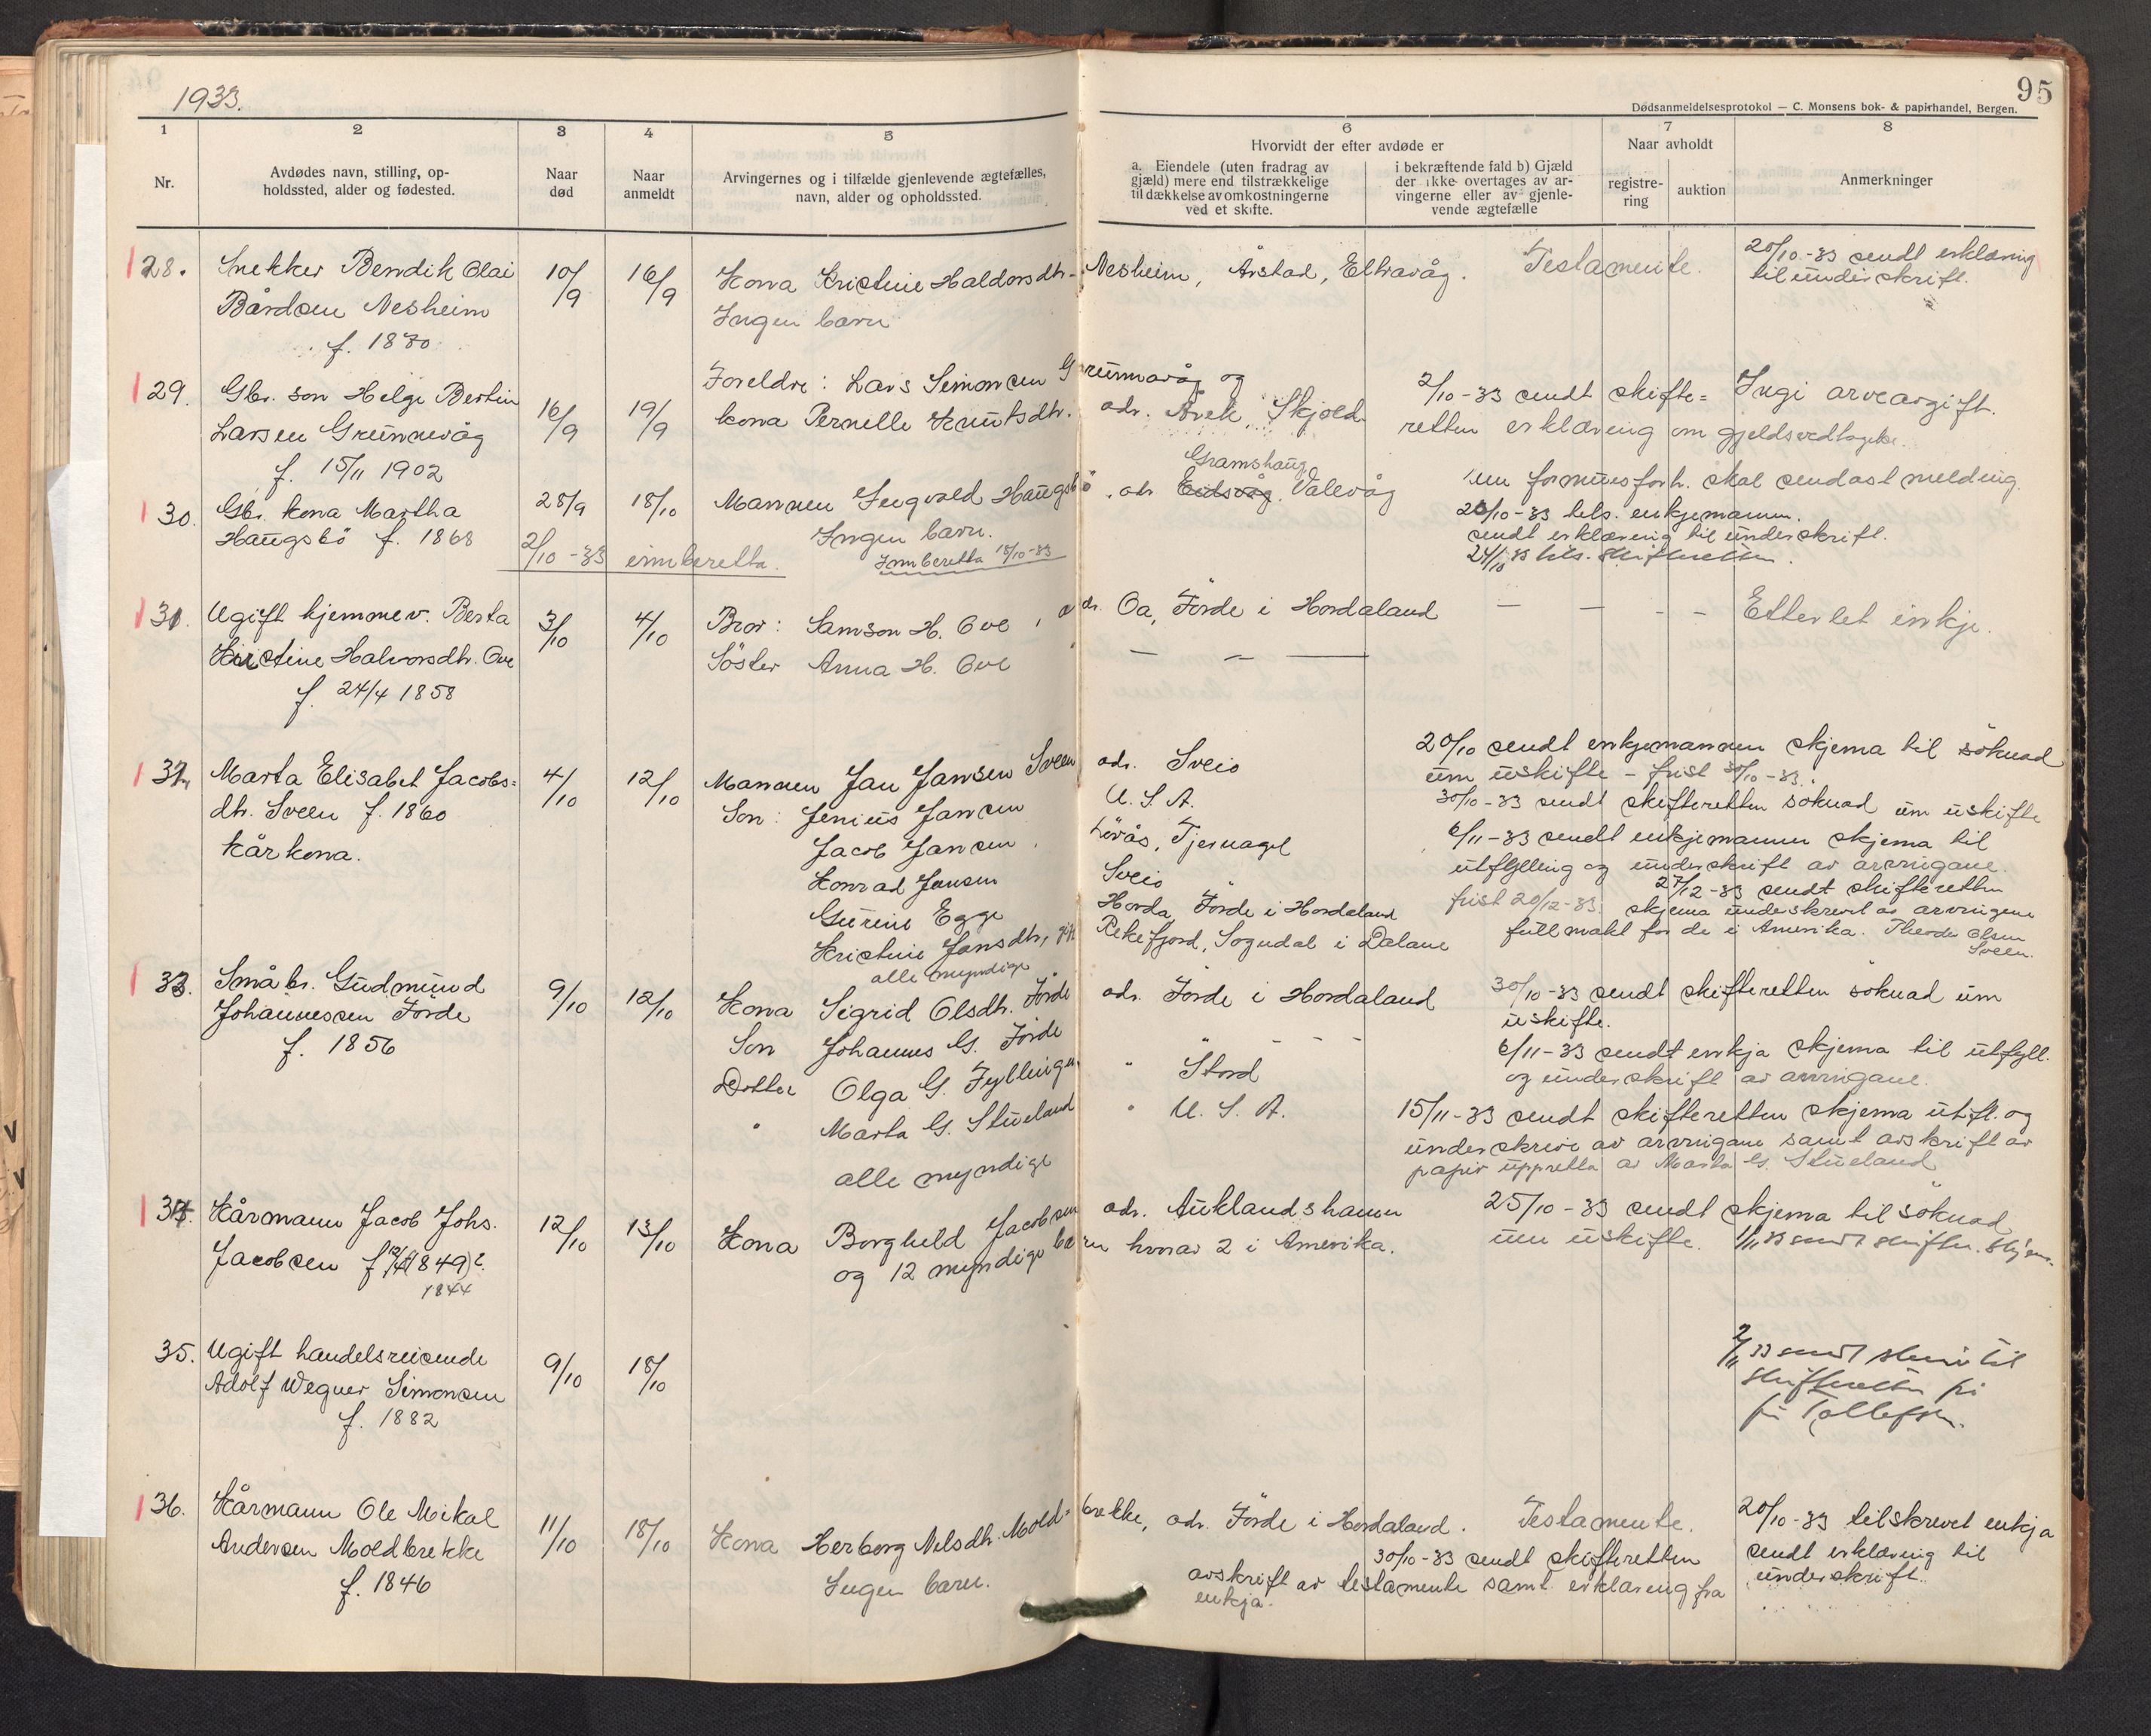 1933.
95
Dødsanmeldelsesprotokol — C. Monsens bok- & papirhandel, Bergen.
1 2 3 4 5 6 7 8
Nr.
Avdødes navn, stilling, op-
holdssted, alder og fødested.
Naar
død
Naar
anmeldt
Arvingernes og i tilfælde gjenlevende ægtefælles,
navn, alder og opholdssted.
Hvorvidt der efter avdøde er
a. Eiendele (uten fradrag av
gjæld) mere end tilstrækkelige
til dækkelse av omkostningerne
ved et skifte.
i bekræftende fald b) Gjæld
der ikke overtages av ar-
vingerne eller av gjenle-
vende ægtefælle
Naar avholdt
registre-
ring
auktion
Anmerkninger
28. Snekker Bendik Olai 10/9 16/9 Kona Kristine Haldorsdtr. Nesheim, Årstad, Eltravåg. Testamente. 20/10-33 sendt erklæring
til underskrift.
Bårdsen Nesheim Ingen barn
f. 1880
29. Gbr. son Helge Bertin 16/9 19/9 Foreldre: Lars Simonsen Grunnavåg og
Larsen Grunnevåg kona Pernelle Knutsdtr. adr. Årek, Skjold
f. 15/11 1902
2/10-33 sendt skifte= Ingi arveavgift.
retten erklæring om gjeldsvedtagelse.
30. Gbr. kona Martha 28/9 18/10 Mannen Ingvald Haugsbö, adr. Eidsvåg Valevåg
Gramshaug
Haugsbö f. 1868 Ingen barn.
2/10-33 innberetta. Innberetta 18/10-33
um formuesforh. skal sendast melding.
20/10-33 tils. enkjemann.
sendt erklæring til underskrift.
24/10 33 tils. skifteretten.
31. Ugift hjemmev. Berta 3/10 4/10 Bror: Samson H. Ove, adr. Oa, Förde i Hordaland — — - - Etterlet inkje.
Kristine Halvorsdtr. Ove Söster Anna H. Ove — — —
f. 24/4 1858
32. Marta Elisabet Jacobs= 4/10 12/10 Mannen Jan Jansen Sveen adr. Sveio
dtr. Sveen f. 1860 Son: Jenius Jansen U.S.A.
kårkona. Jacob Jansen, Lövås, Tjernagel
Konrad Jansen Sveio
Gurine Egge Horda, Förde i Hordaland
Kristine Jansdtr, gift Rekefjord, Sogndal i Dalane
alle myndige
20/10 sendt enkjemannen skjema til söknad
um uskifte - frist 30/10-33.
30/10-33 sendt skifteretten söknad um uskifte
6/11-33 sendt enkjemann skjema til
utfylling og underskrift av arvingane.
frist 20/12-33. 27/12-33 sendt skifteretten
skjema underskrevet av arvingene
fullmakt for de i Amerika. Theodor Olsen
Sveen.
33. Småbr. Gudmund 9/10 12/10 Kona Sigrid Olsdtr. Förde adr. Förde i Hordaland
Johannessen Förde Son Johannes G. Förde " - - -
f. 1856 Dotter Olga G. Fyllingen " Stord
" Marta G. Stueland " U.S.A.
alle myndige
30/10-33 sendt skifteretten söknad um
uskifte.
6/11-33 sendt enkja skjema til utfyll.
og underskrift av arvingane.
15/11-33 sendt skifteretten skjema utfl. og
underskreve av arvingane samt avskrift av
papir uppretta av Marta G. Stueland
34. Kårmann Jacob Johs. 12/10 13/10 Kona Borghild Jacobsen adr. Auklandshamn
Jacobsen f. 12/4 (1849)? og 12 myndige barn hvorav 2 i Amerika.
1844
25/10-33 sendt skjema til söknad
um uskifte. 1/11 33 sendt skifter. skjema
35. Ugift handelsreisende 9/10 18/10
Adolf Wegner Simonsen
f. 1882
2/11 33 sendt skriv til
skifteretten frå
Tollefsen.
36. Kårmann Ole Mikal 11/10 18/10 Kona Herborg Nilsdtr. Mold=brekke, adr. Förde i Hordaland. Testamente. 20/10-33 tilskrevet enkja
Andersen Moldbrekke Ingen barn. sendt erklæring til
f. 1846 underskrift.
30/10-33 sendt skifteretten
avskrift av testamente samt erklæring fra
enkja.